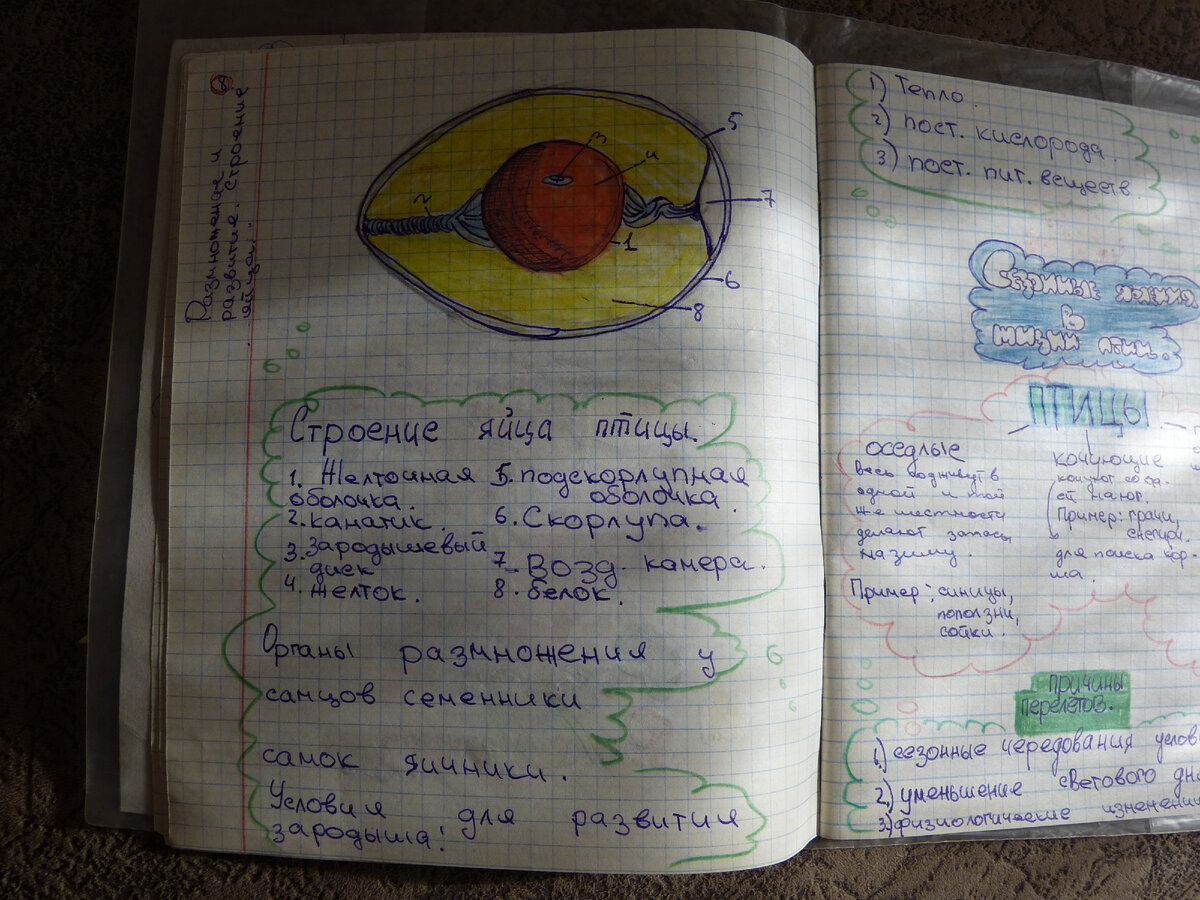 Размножение и
развитие. Строение
яйца.
8
3
4
2
1
5
7
6
8
Строение яйца птицы.
1. Желточная
оболочка.
2. канатик.
3. Зародышевый
диск
4. Желток.
5. подскорлупная
оболочка
6. Скорлупа.
7. Возд. камера.
8. белок.
Органы размножения у
самцов семенники
самок яичники.
Условия для развития
зародыша!
1) Тепло.
2) пост. кислорода.
3) пост. пит. веществ.
Сезонные
в
жизни птиц.
ПТИЦЫ
оседлые
весь год живут в
одной и той
же местности
делают запасы
на зиму.
Пример: синицы,
поползни,
сойки.
кочующие
Пример: грачи,
снегири.
для поиска кор-
ма.
причины
перелетов.
1.) сезонные чередования услов
2.) уменьшение светового дн
3.) физиологические изменени